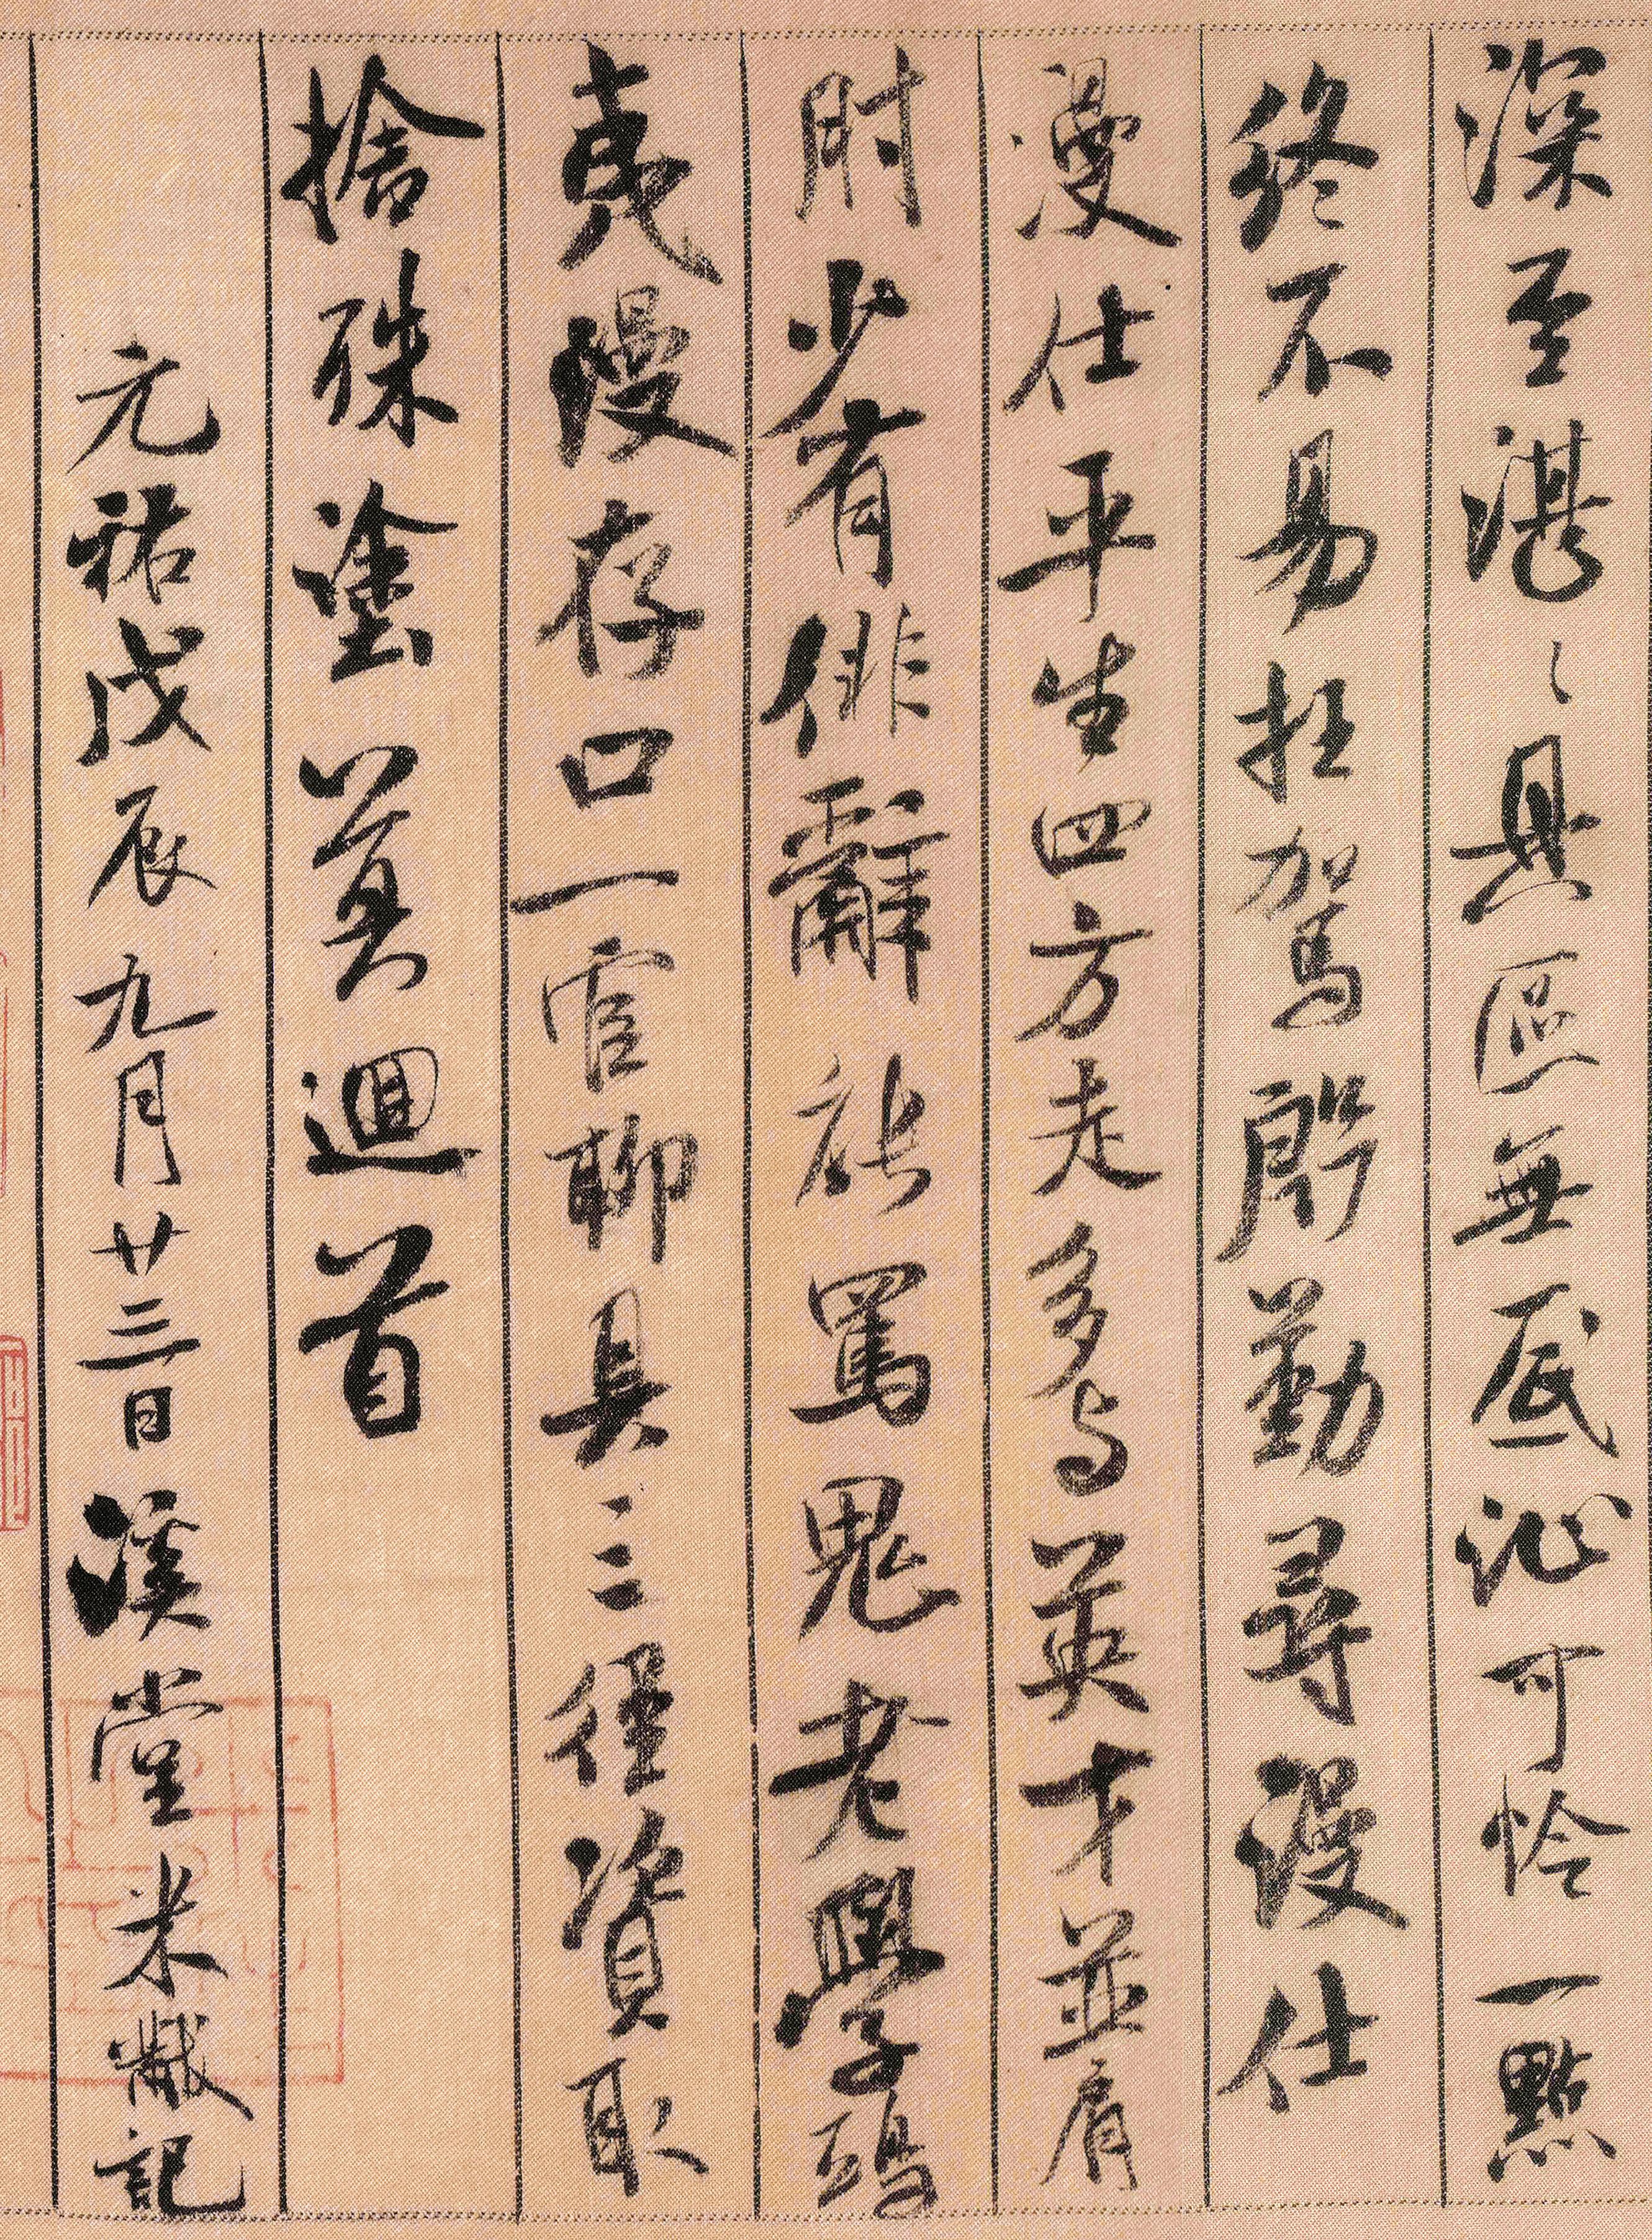 深至湛〻具區無底沚可怜一點
終不易抂駕殷勤尋漫仕
漫仕平生四方走多与英才並肩
肘少有俳辭能罵鬼老學鴟
夷漫存口一官聊具三徑資取
捨殊塗莫迴首
元祐戊辰九月廿三日溪堂米黻記